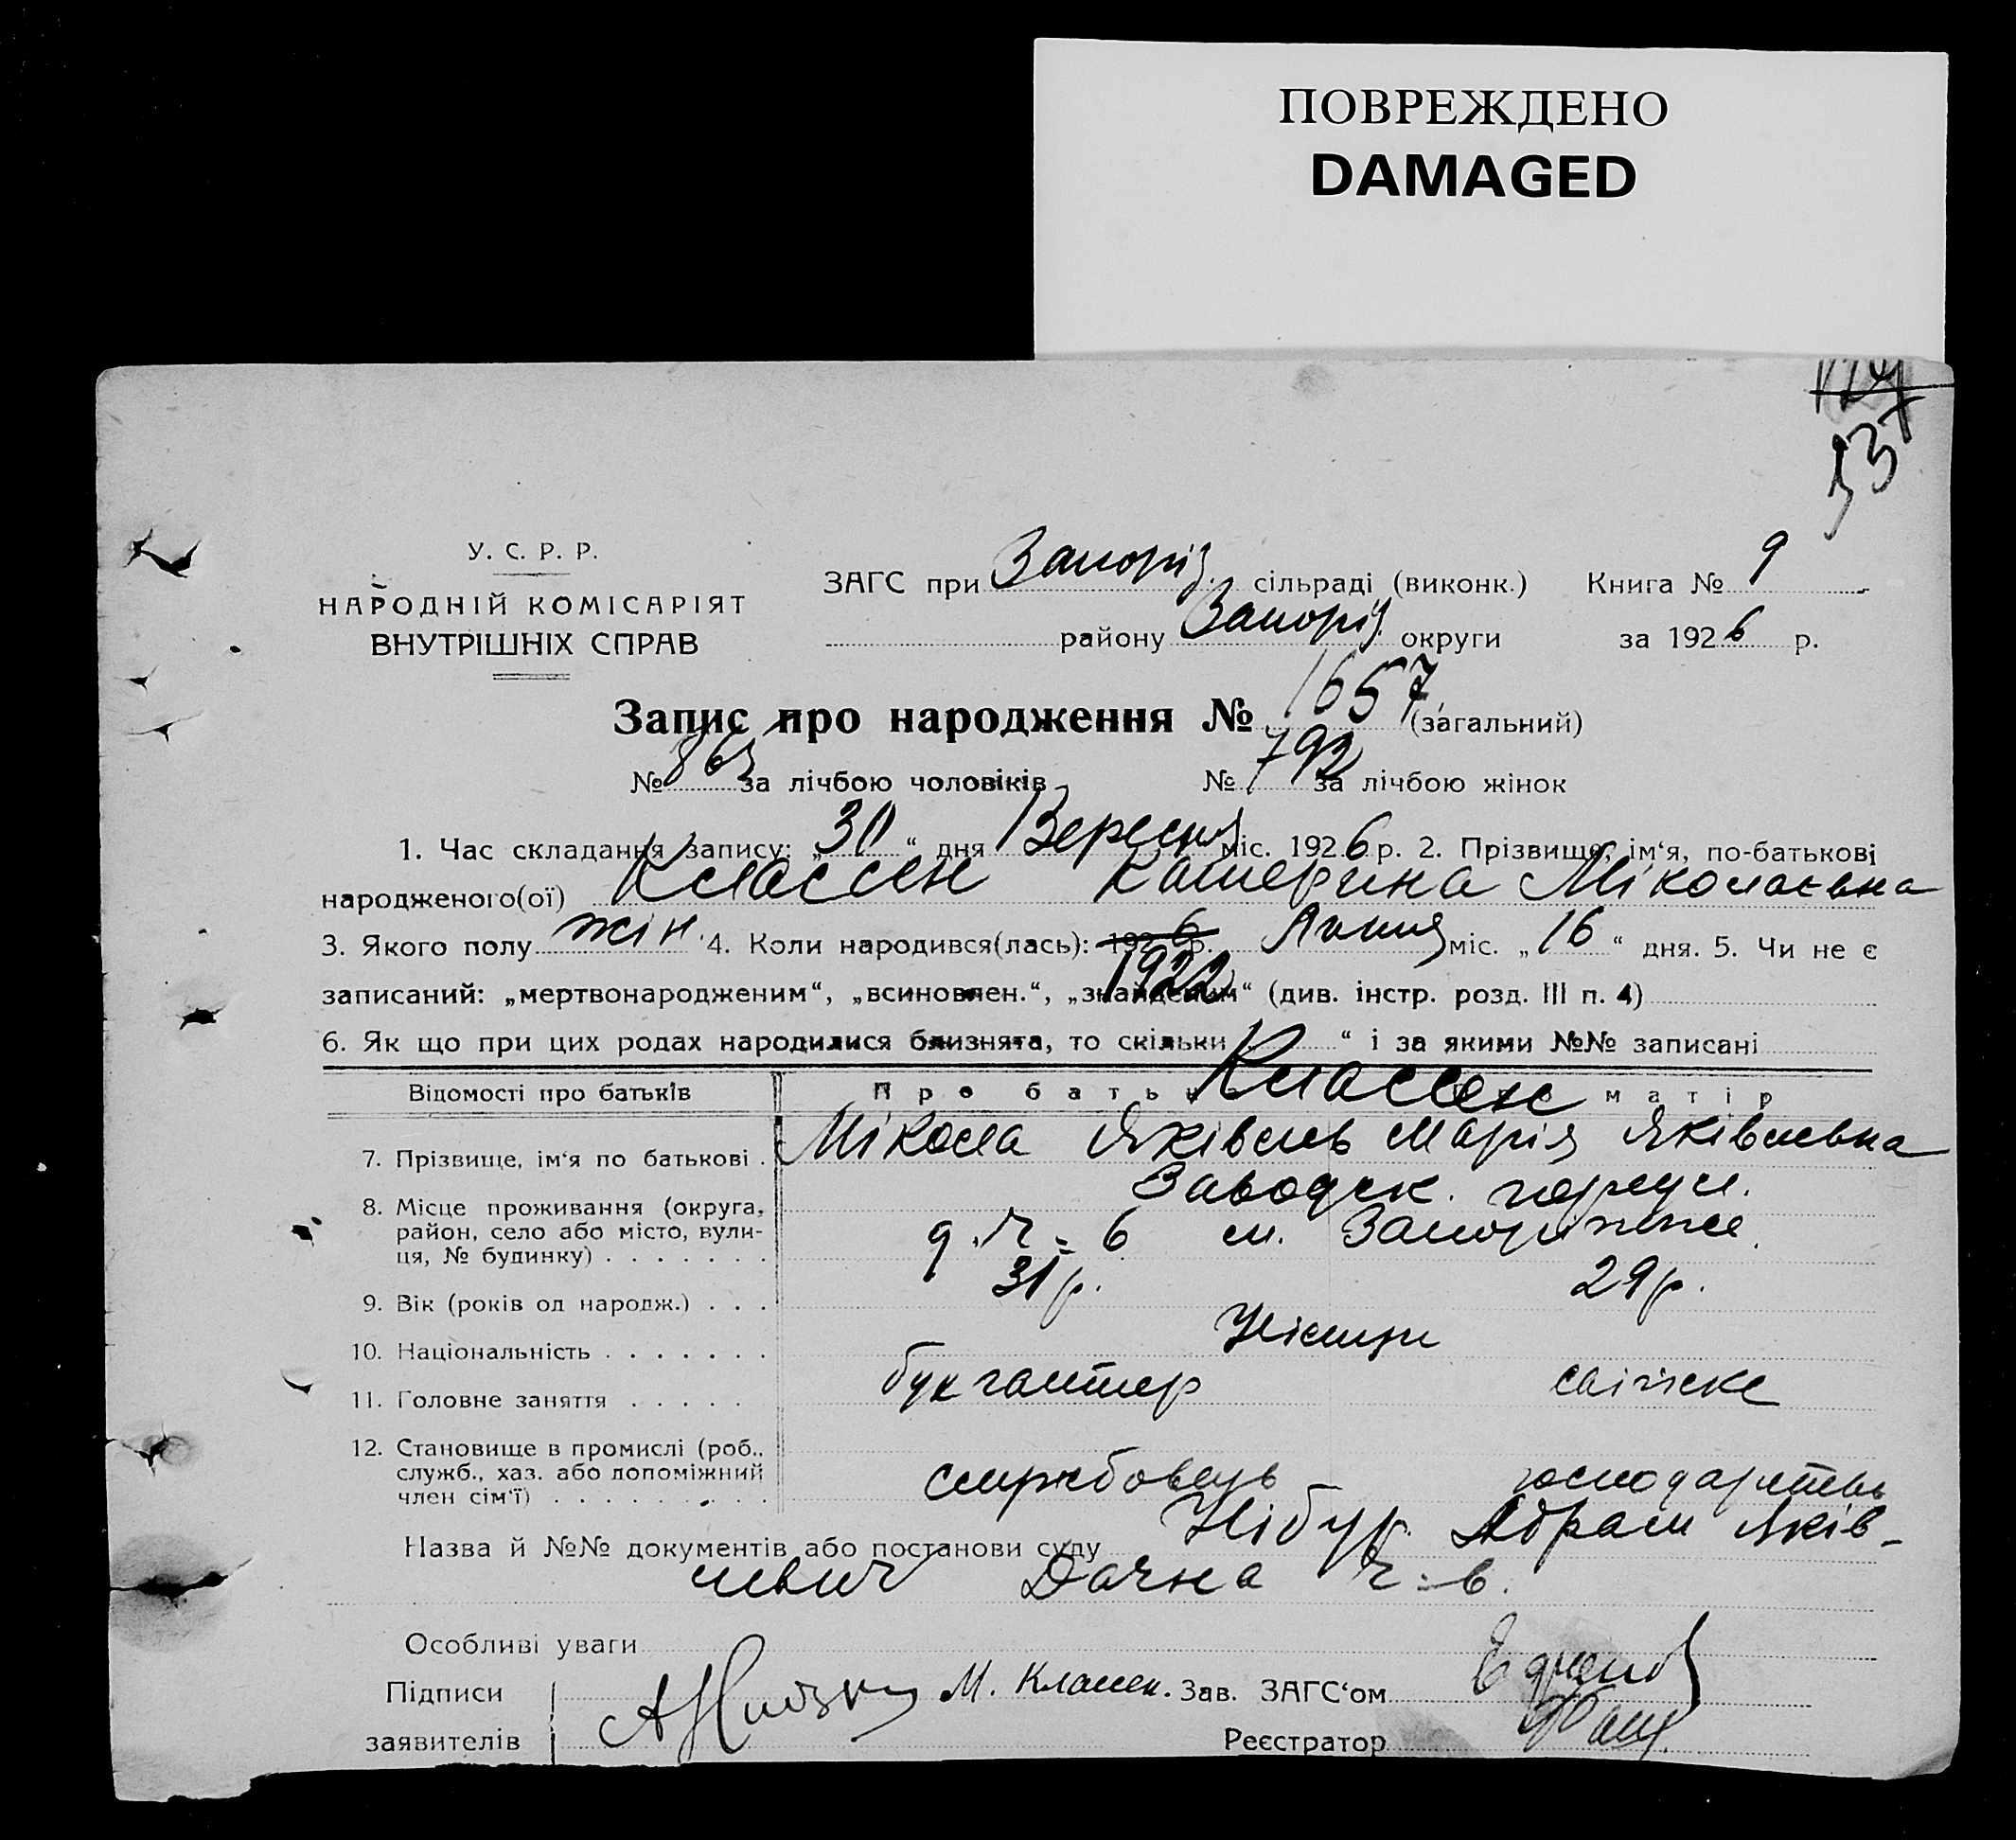 ПОВРЕЖДЕНО
DAMAGED
137
У. С. Р. Р.
НАРОДНІЙ КОМІСАРІЯТ
ВНУТРІШНІХ СПРАВ
ЗАГС при Запоріз. сільраді (виконк.) Книга № 9
району Запоріз. округи за 1926 р.
Запис про народження № 1657 (загальний)
№ 865 за лічбою чоловіків № 792 за лічбою жінок
1. Час складання запису: „30“ дня Вересня міс. 1926 р. 2. Прізвище, ім‘я, по-батькові
народженого(ої) Классен Катерина Міколаєвна
3. Якого полу жін. 4. Коли народився(лась): 1926 р. міс. „16“ дня. 5. Чи не є
1922
записаний: „мертвонародженим“, „всиновлен.“, „знайденим“ (див. інстр. розд. III п. 4)
6. Як що при цих родах народилися близнята, то скільки “ і за якими №№ записані
Відомості про батьків Про батька Про матір
Классен
7. Прізвище, ім‘я по батькові . Мікола Яківель Марія Яківлевна
8. Місце проживання (округа, район, село або місто, вули- ця, № будинку) . . . . . . .
Заводск.
д. №= 6 м. Запоріжже
9. Вік (років од народж.) . . . 31 р. 29 р.
10. Національність . . . . . . . Німци
11. Головне заняття . . . . . бухгалтер хатнєе
12. Становище в промислі (роб., служб., хаз. або допоміжний член сім‘ї) . . . . . . . . .
службовець
Назва й №№ документів або постанови суду Нібур Абрам Яків-
левич Дачна №=6.
Особливі уваги
Підписи
заявителів
М. Классен. Зав. ЗАГС‘ом
Реєстратор